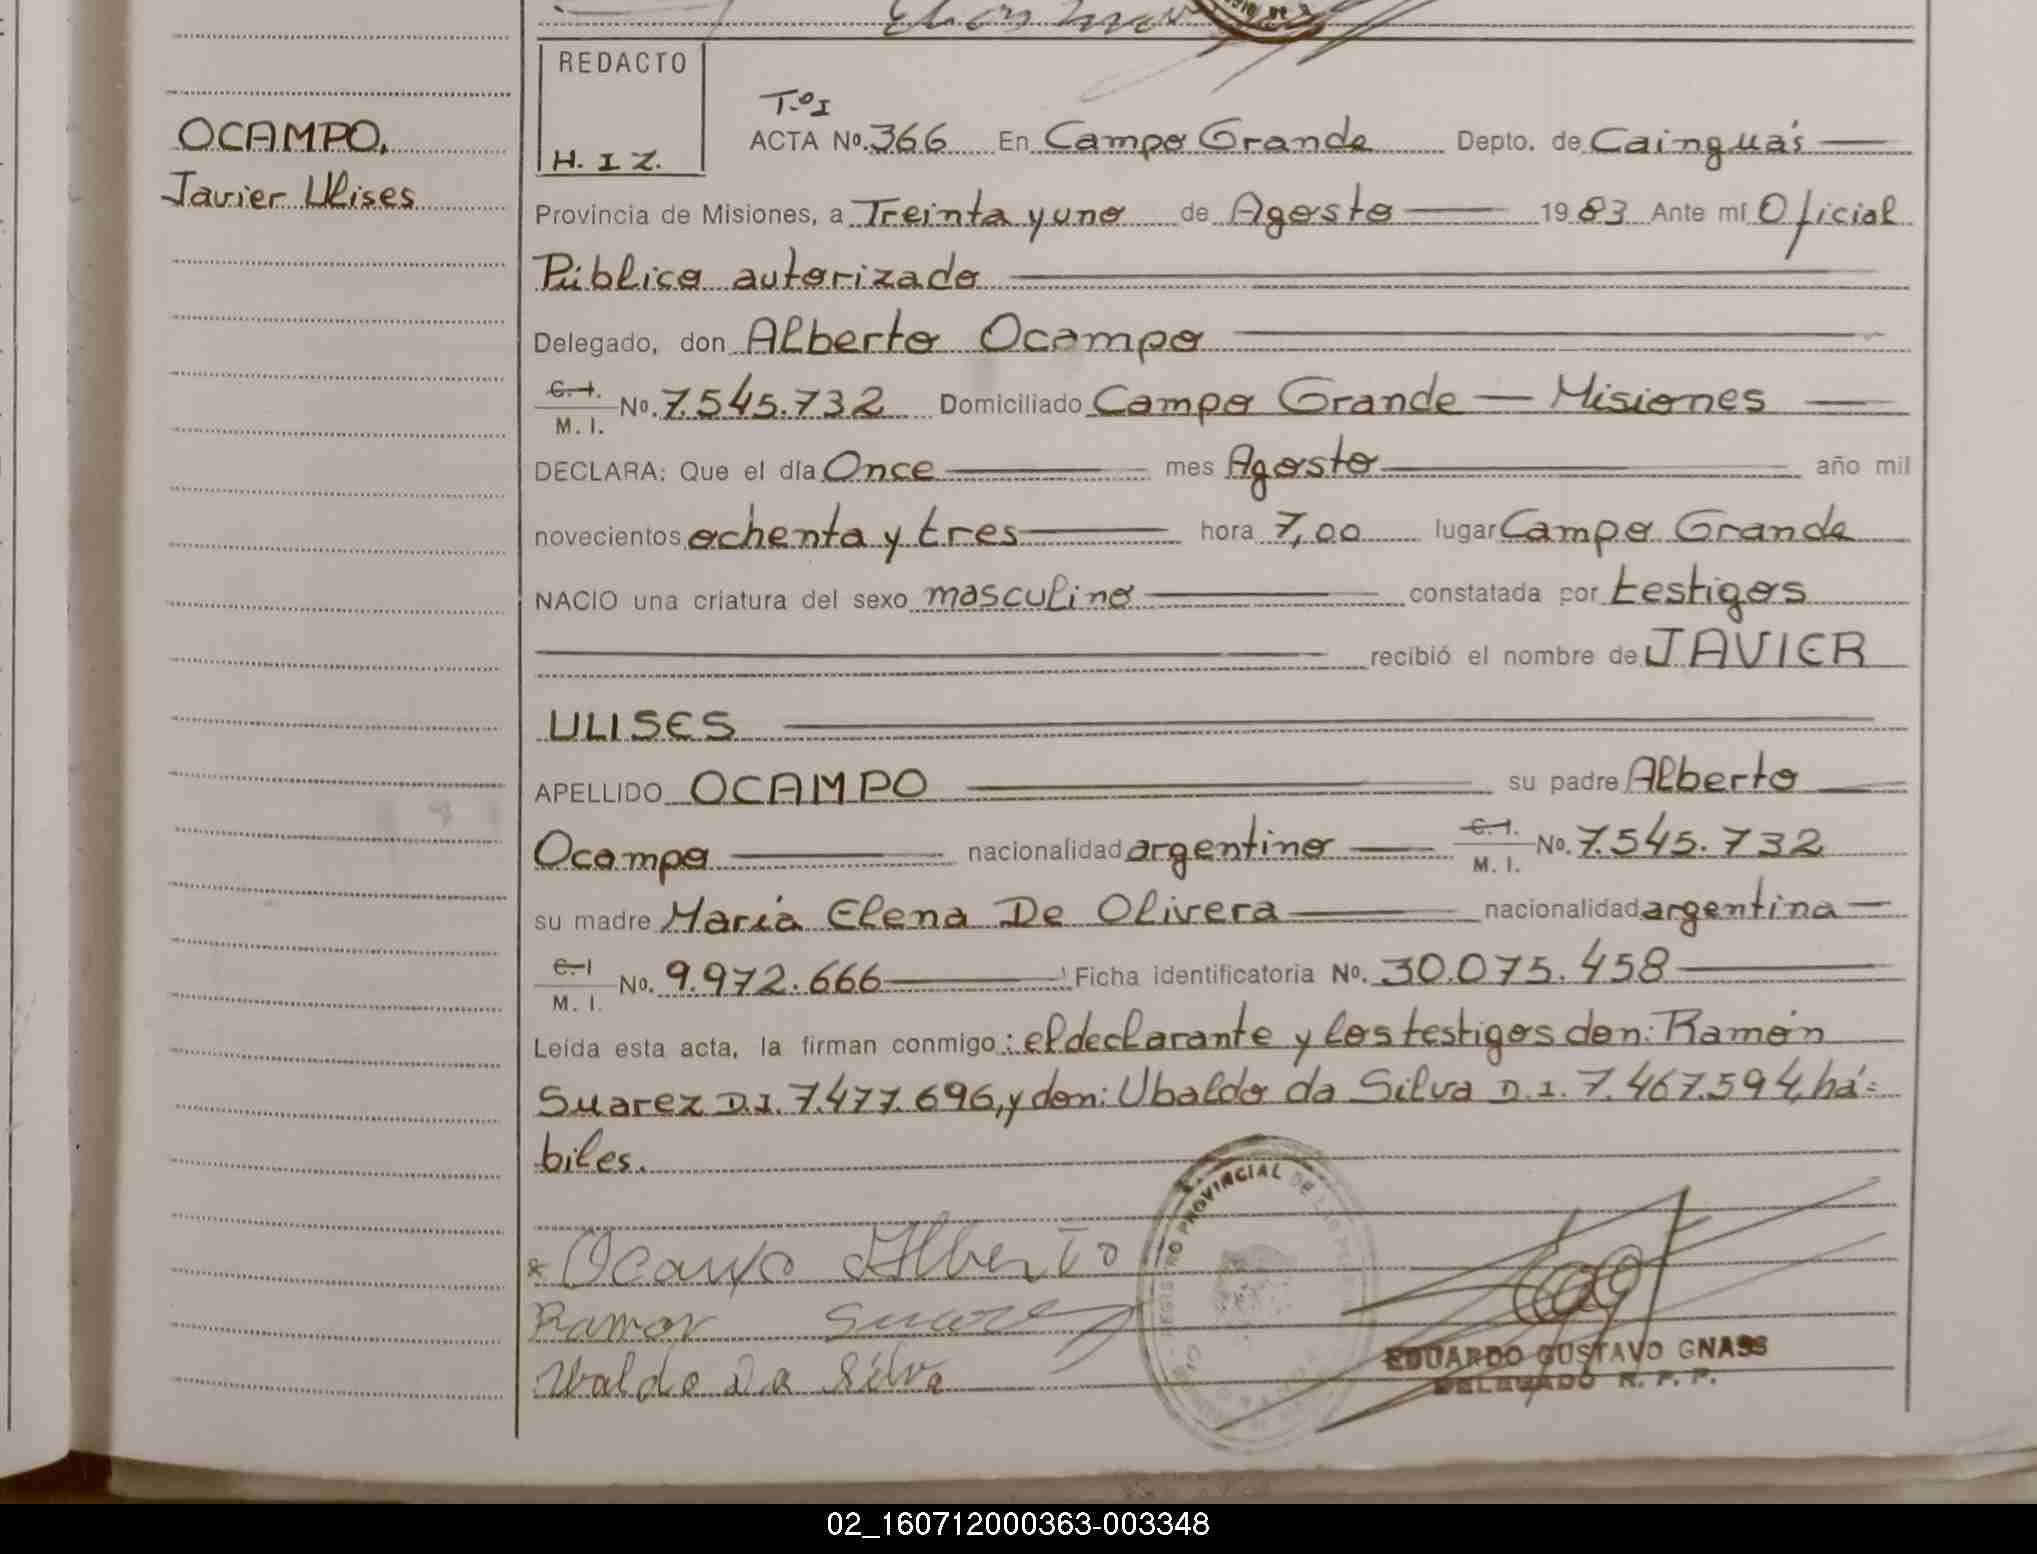 REDACTO
T.º I
OCAMPO,
ACTA Nº. 366 En Campo Grande Depto. de Cainguás
H. I Z.
Javier Ulises
Provincia de Misiones, a Treinta y uno de Agosto 1983 Ante mí Oficial
Público autorizado
Delegado, don Alberto Ocampo
C. I.
M. I. No. 7.545.732 Domiciliado Campo Grande — Misiones
DECLARA: Que el día Once mes Agosto año mil
novecientos ochenta y tres hora 7,00 lugar Campo Grande
NACIO una criatura del sexo masculino constatada por testigos
recibió el nombre de JAVIER
ULISES
APELLIDO OCAMPO su padre Alberto
Ocampo nacionalidad argentino C. I. M. I. No. 7.545.732
su madre María Elena De Olivera nacionalidad argentina
C. I
M. I. No. 9.972.666 Ficha identificatoria No. 30.075.458
Leída esta acta, la firman conmigo: el declarante y los testigos don: Ramón
Suarez D.I. 7.477.696, y don: Ubaldo da Silva D.I. 7.467.594, há=
biles.
REGISTRO PROVINCIAL DE LAS
Ocampo Alberto
Ramon Suarez
Ubaldo Da Silva
EDUARDO GUSTAVO GNASS
DELEGADO R. P. P.
02_160712000363-003348